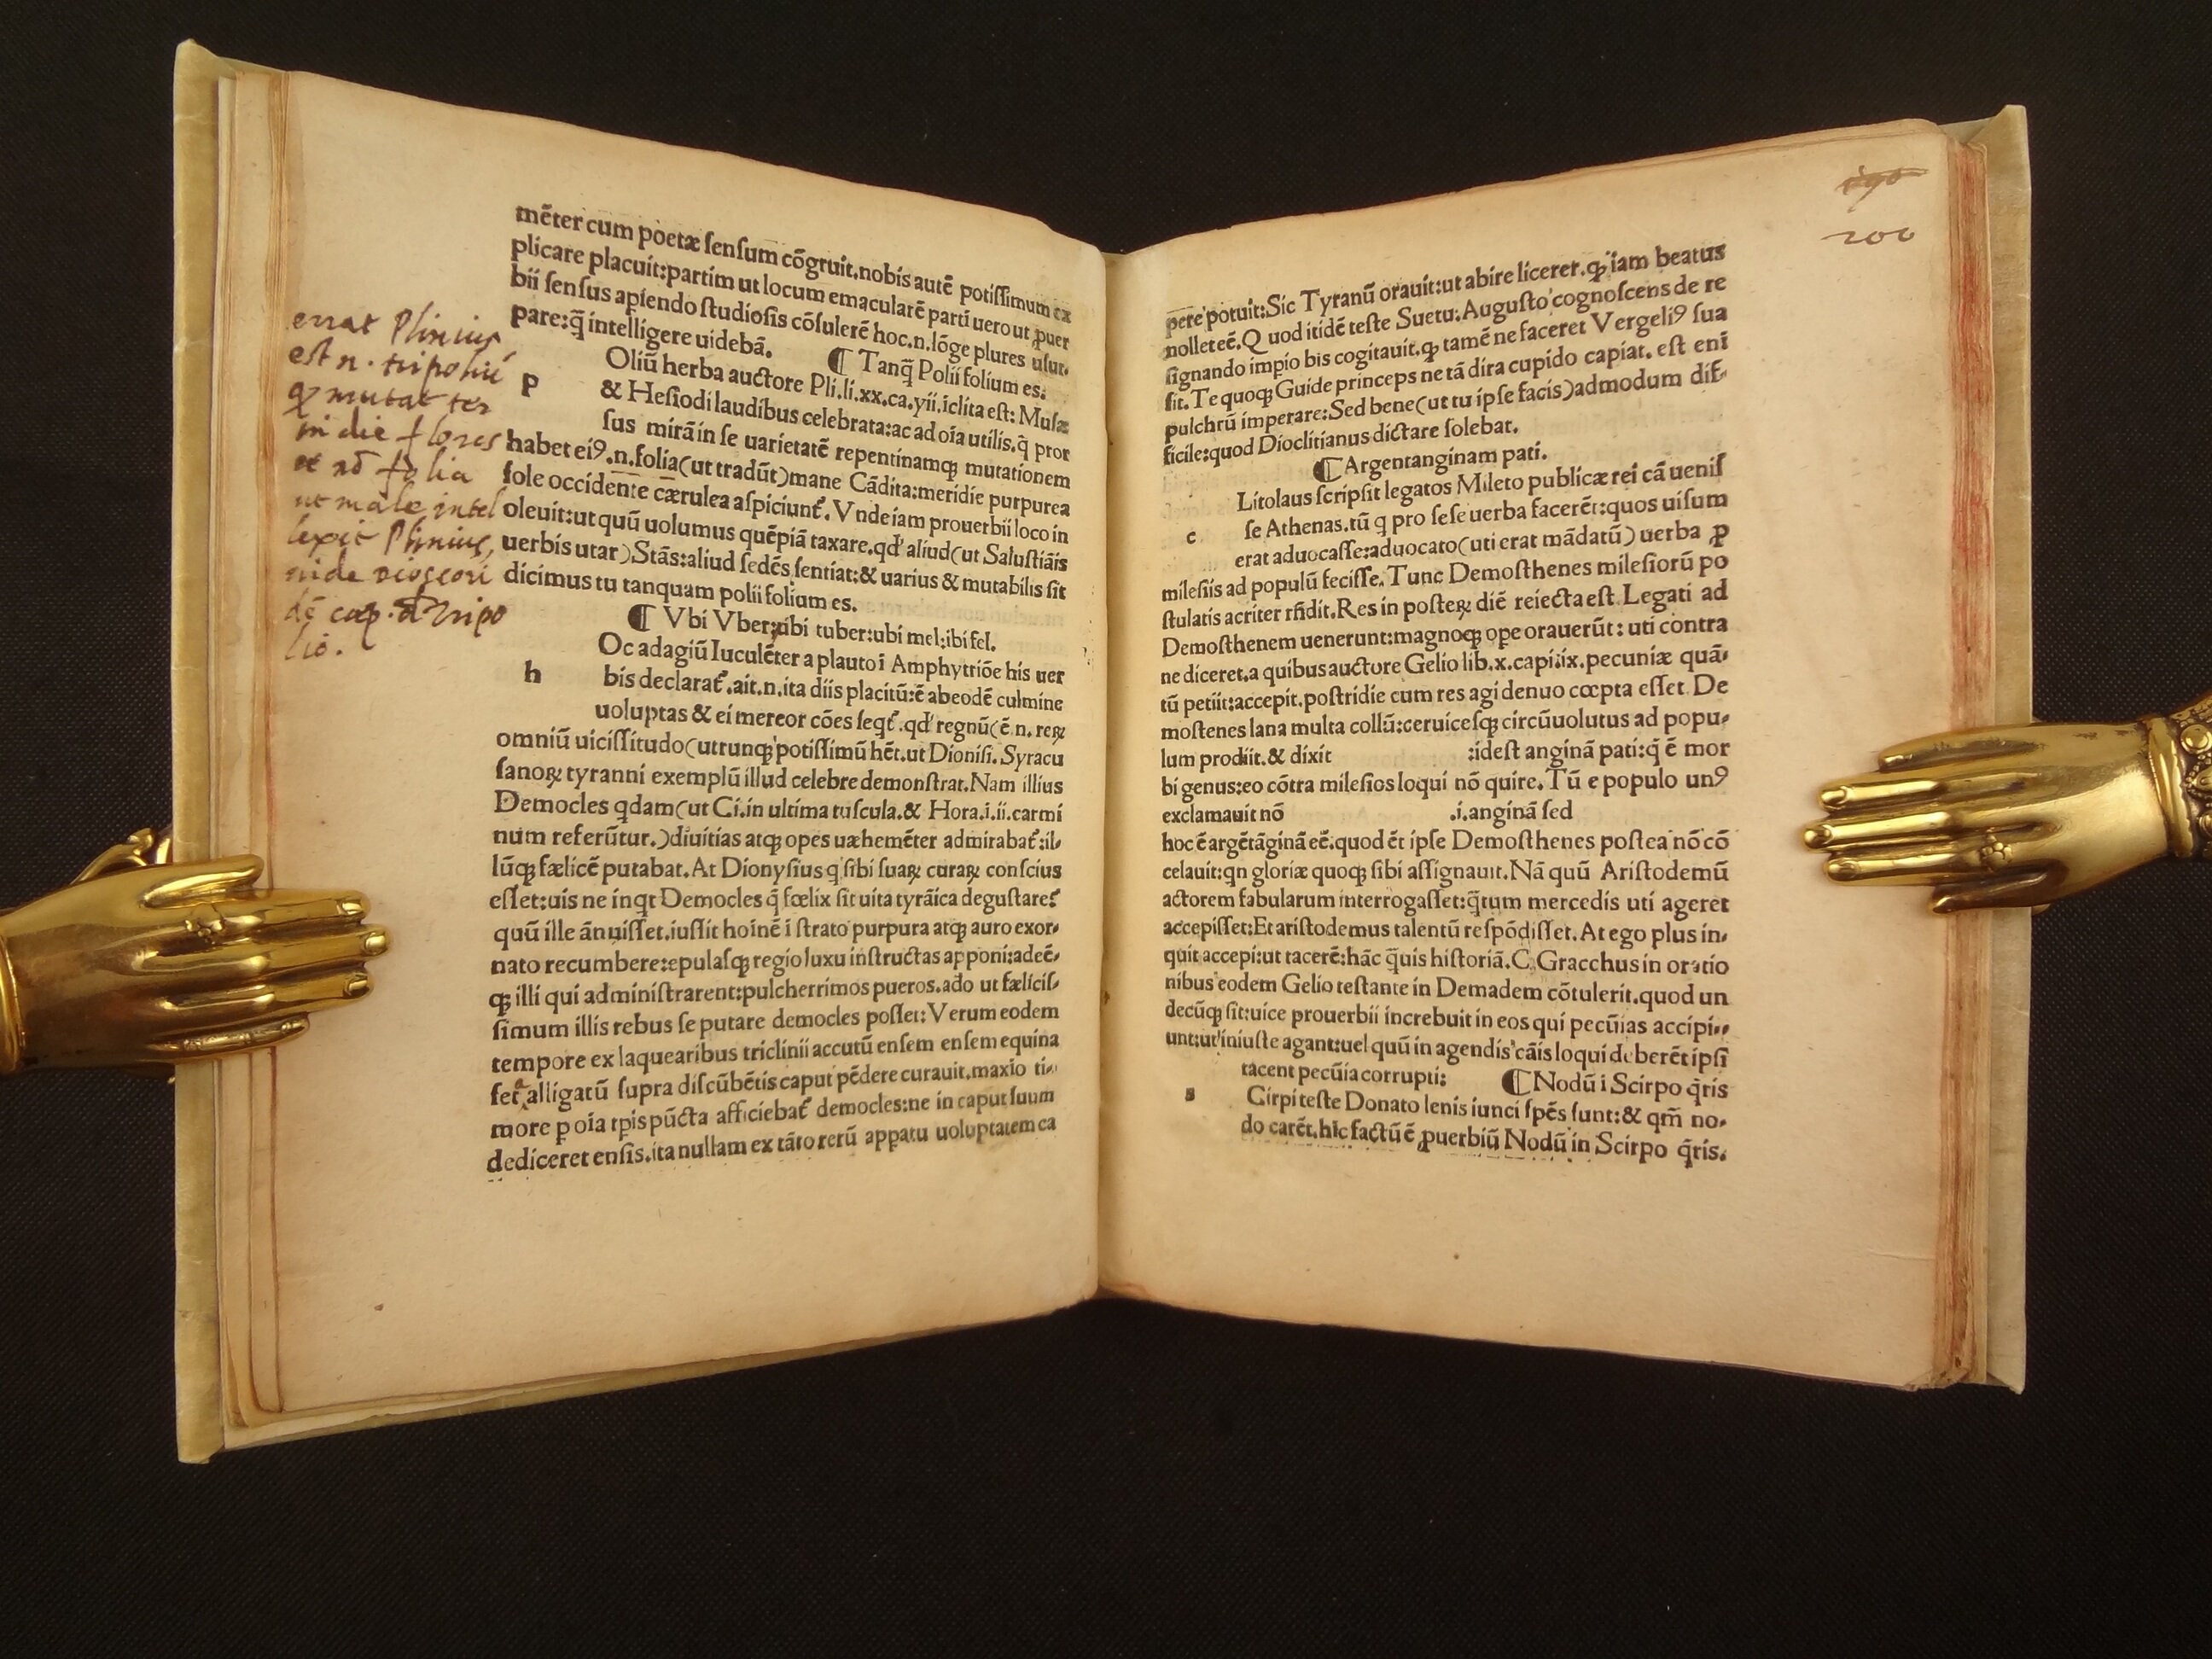 mēter cum poetæ ſenſum cōgruit.nobis autē potiſſimum ex
plicare placuit:partim ut locum emacularē parti uero ut ꝓuer
bii ſenſus apiendo ſtudioſis cōſulerē hoc.n.lōge plures uſur-
pare:q̄ intelligere uidebā. ¶ Tanq̄ Polii folium es.
p Oliū herba auctore Pli.li.xx.ca.yii.iclita eſt: Muſæ
& Heſiodi laudibus celebrata:ac ad oīa utilis.q̄ pror
ſus mirā in ſe uarietatē repentinamqꝫ mutationem
habet eiꝰ.n.folia(ut tradūt)mane Cādita:meridie purpurea
ſole occidente cærulea aſpiciunt᷑. Vnde iam prouerbii loco in
oleuit:ut quū uolumus quēpiā taxare.qd' aliud(ut Saluſtiāis
uerbis utar)Stās:aliud ſedēs ſentiat:& uarius & mutabilis ſit
dicimus tu tanquam polii folium es.
¶ Vbi Vber:ubi tuber:ubi mel:ibi fel.
h Oc adagiū luculēter a plauto ī Amphytriōe his uer
bis declarat᷑.ait.n.ita diis placitū:ē abeodē culmine
uoluptas & ei mereor cōes ſeqt᷑.qd' regnū(ē.n.reꝝ
omniū uiciſſitudo(utrunqꝫ potiſſimū hēt.ut Dioniſi. Syracu
ſanoꝝ tyranni exemplū illud celebre demonſtrat.Nam illius
Democles qdam(ut Ci.in ultima tuſcula.& Hora.i.ii.carmi
num referūtur.)diuitias atqꝫ opes uæhemēter admirabat᷑:il-
lūqꝫ fælicē putabat.At Dionyſius q ſibi ſuaꝝ curaꝝ conſcius
eſſet:uis ne inqt Democles q̄ fœlix ſit uita tyrāica deguſtare?
quū ille ānuiſſet.iuſſit hoīnē ī ſtrato purpura atqꝫ auro exor-
nato recumbere:epulaſqꝫ regio luxu inſtructas apponi:adeē-
qꝫ illi qui adminiſtrarent:pulcherrimos pueros.ado ut fæliciſ-
ſimum illis rebus ſe putare democles poſſet: Verum eodem
tempore ex laquearibus triclinii accutū enſem enſem equina
ſet a alligatū ſupra diſcūbētis caput pēdere curauit.maxio ti-
more ꝑ oīa tꝑis pūcta afficiebat᷑ democles:ne in caput ſuum
dediceret enſis.ita nullam ex tāto rerū appatu uoluptatem ca
errat Plinius
est n. tripoliū
q̄ mutat ter
in die flores
et nō folia
ut male intel
lexit Plinius,
uide dioscori
dē cap. d̄ Tripo
lio.
190
200
pere potuit:Sic Tyranū orauit:ut abire liceret.qꝫ iam beatus
nollet eē.Quod itidē teſte Suetu.Auguſto cognoſcens de re
ſignando impio bis cogitauit.qꝫ tamē ne faceret Vergeliꝰ ſua
ſit.Te quoqꝫ Guide princeps ne tā dira cupido capiat. eſt enī
pulchrū imperare:Sed bene(ut tu ipſe facis)admodum diſ-
ficile:quod Dioclitianus dictare ſolebat.
¶Argentanginam pati.
c Litolaus ſcripſit legatos Mileto publicæ rei cā ueniſ
ſe Athenas.tū q pro ſeſe uerba facerēt:quos uiſum
erat aduocaſſe:aduocato(uti erat mādatū) uerba ꝓ
mileſiis ad populū feciſſe.Tunc Demoſthenes mileſiorū po
ſtulatis acriter rn̄dit.Res in poſteꝝ diē reiecta eſt Legati ad
Demoſthenem uenerunt:magnoqꝫ ope orauerūt: uti contra
ne diceret.a quibus auctore Gelio lib.x.capi.ix.pecuniæ quā-
tū petiit:accepit.poſtridie cum res agi denuo cœpta eſſet De
moſtenes lana multa collū:ceruiceſqꝫ circūuolutus ad popu-
lum prodiit.& dixit :ideſt anginā pati:q̄ ē mor
bi genus:eo cōtra mileſios loqui nō quire.Tū e populo unꝰ
exclamauit nō .i.anginā ſed
hoc ē argētāginā eē.quod ēt ipſe Demoſthenes poſtea nō cō
celauit:qn gloriæ quoqꝫ ſibi aſſignauit.Nā quū Ariſtodemū
actorem fabularum interrogaſſet:q̄tum mercedis uti ageret
accepiſſet:Et ariſtodemus talentū reſpōdiſſet.At ego plus in-
quit accepi:ut tacerē:hāc q̄uis hiſtoriā.C.Gracchus in oratio
nibus eodem Gelio teſtante in Demadem cōtulerit.quod un
decūqꝫ ſit:uice prouerbii increbuit in eos qui pecūias accipi-
unt:ut iniuſte agant:uel quū in agendis cāis loqui deberēt ipſi
tacent pecūia corrupti: ¶Nodū i Scirpo q̄ris
s Cirpi teſte Donato lenis iunci ſpēs ſunt:& qm̄ no-
do carēt.hic factū ē ꝓuerbiū Nodū in Scirpo q̄ris.